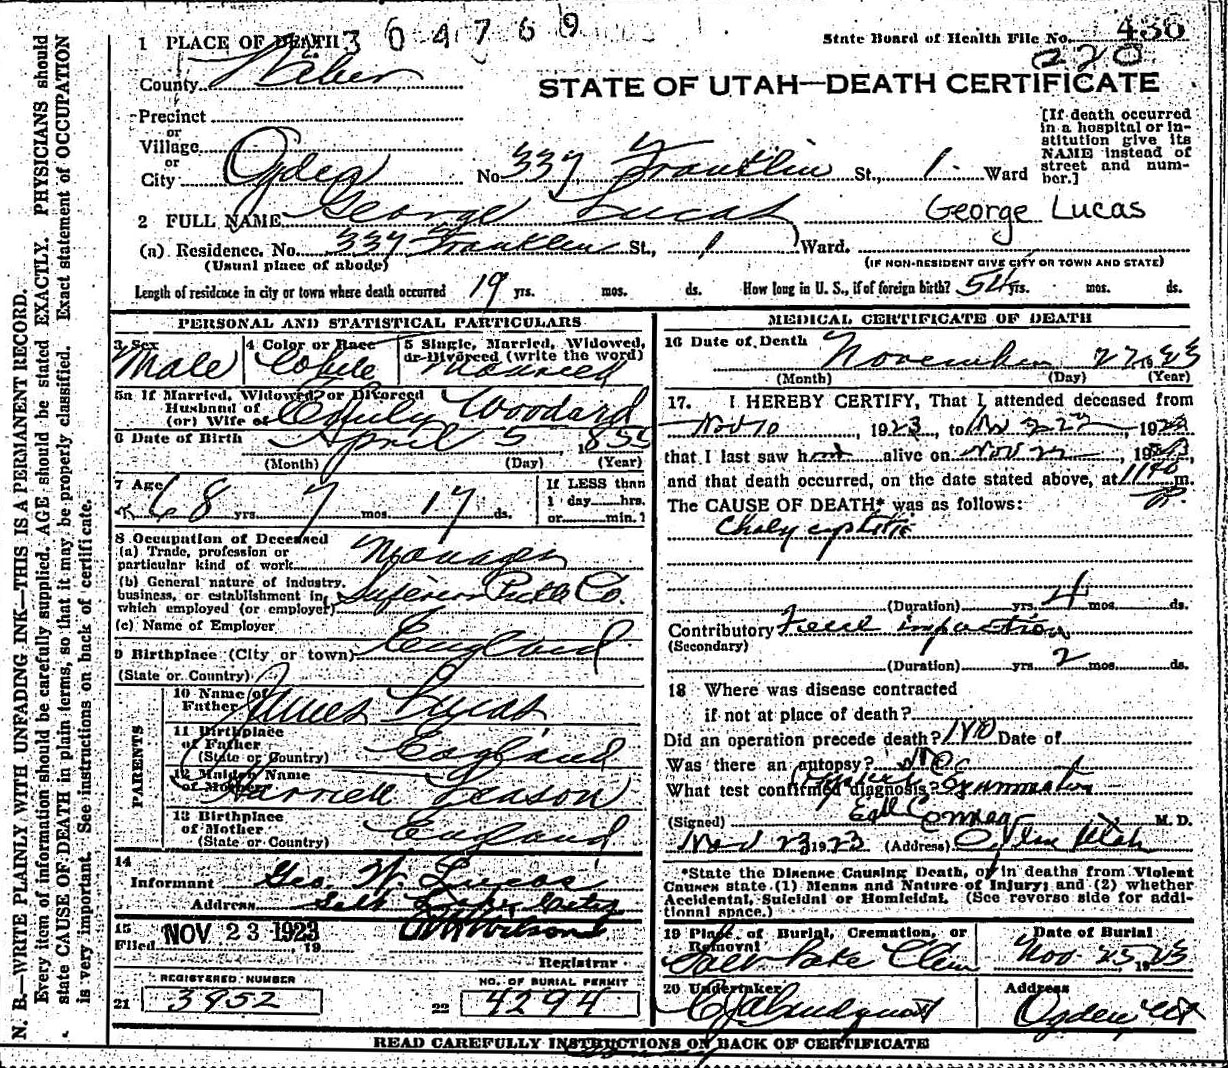 N. B.—WRITE PLAINLY WITH UNFADING INK—THIS IS A PERMANENT RECORD.
Every item of information should be carefully supplied. AGE should be stated EXACTLY. PHYSICIANS should
state CAUSE OF DEATH in plain terms, so that it may be properly classified. Exact statement of OCCUPATION
is very important. See instructions on back of certificate.
304769
State Board of Health File No. 436
220
1 PLACE OF DEATH
County Weber
STATE OF UTAH—DEATH CERTIFICATE
Precinct
or
Village
or
City Ogden No. 337 Franklin St., 1 Ward
[If death occurred
in a hospital or in-
stitution give its
NAME instead of
street and num-
ber.]
2 FULL NAME George Lucas George Lucas
(a) Residence. No. 337 Franklin St., 1 Ward.
(Usual place of abode) (IF NON-RESIDENT GIVE CITY OR TOWN AND STATE)
Length of residence in city or town where death occurred 19 yrs. mos. ds. How long in U. S., if of foreign birth? 54 yrs. mos. ds.
PERSONAL AND STATISTICAL PARTICULARS
3 Sex
Male
4 Color or Race
5 Single, Married, Widowed,
or Divorced (write the word)
Married
5a If Married, Widowed, or Divorced
Husband of
(or) Wife of Woodard
6 Date of Birth April 5 1855
(Month) (Day) (Year)
7 Age 68 yrs. 7 mos. 17 ds.
If LESS than
1 day hrs.
or min.?
8 Occupation of Deceased
(a) Trade, profession or
particular kind of work Manager
(b) General nature of industry,
business, or establishment in
which employed (or employer) Superior Pickle Co.
(c) Name of Employer
9 Birthplace (City or town) England
(State or Country)
PARENTS
10 Name of
Father James Lucas
11 Birthplace
of Father England
(State or Country)
12 Maiden Name
of Mother Leason
13 Birthplace
of Mother England
(State or Country)
14
Informant Geo. W. Lucas
Address Salt Lake City
15
Filed NOV 23 1923 19
Wilson
Registrar
REGISTERED NUMBER
21 3952
NO. OF BURIAL PERMIT
22 4294
MEDICAL CERTIFICATE OF DEATH
16 Date of Death
November 22 1923
(Month) (Day) (Year)
17. I HEREBY CERTIFY, That I attended deceased from
Nov 10, 1923, to Nov 22, 1923
that I last saw h alive on Nov 22, 1923,
and that death occurred, on the date stated above, at 1140 m.
P.
The CAUSE OF DEATH* was as follows:
(Duration) yrs. 4 mos. ds.
Contributory Fecal impaction
(Secondary)
(Duration) yrs. 2 mos. ds.
18 Where was disease contracted
if not at place of death?
Did an operation precede death? No Date of
Was there an autopsy? No
What test confirmed diagnosis? Examination
(Signed) M. D.
Nov 23 1923 (Address) Ogden Utah
*State the Disease Causing Death, or in deaths from Violent
Causes state (1) Means and Nature of Injury; and (2) whether
Accidental, Suicidal or Homicidal. (See reverse side for addi-
tional space.)
19 Place of Burial, Cremation, or
Removal
Salt Lake Cem
Date of Burial
Nov. 25, 1923
20 Undertaker
Address
Ogden Ut
READ CAREFULLY INSTRUCTIONS ON BACK OF CERTIFICATE